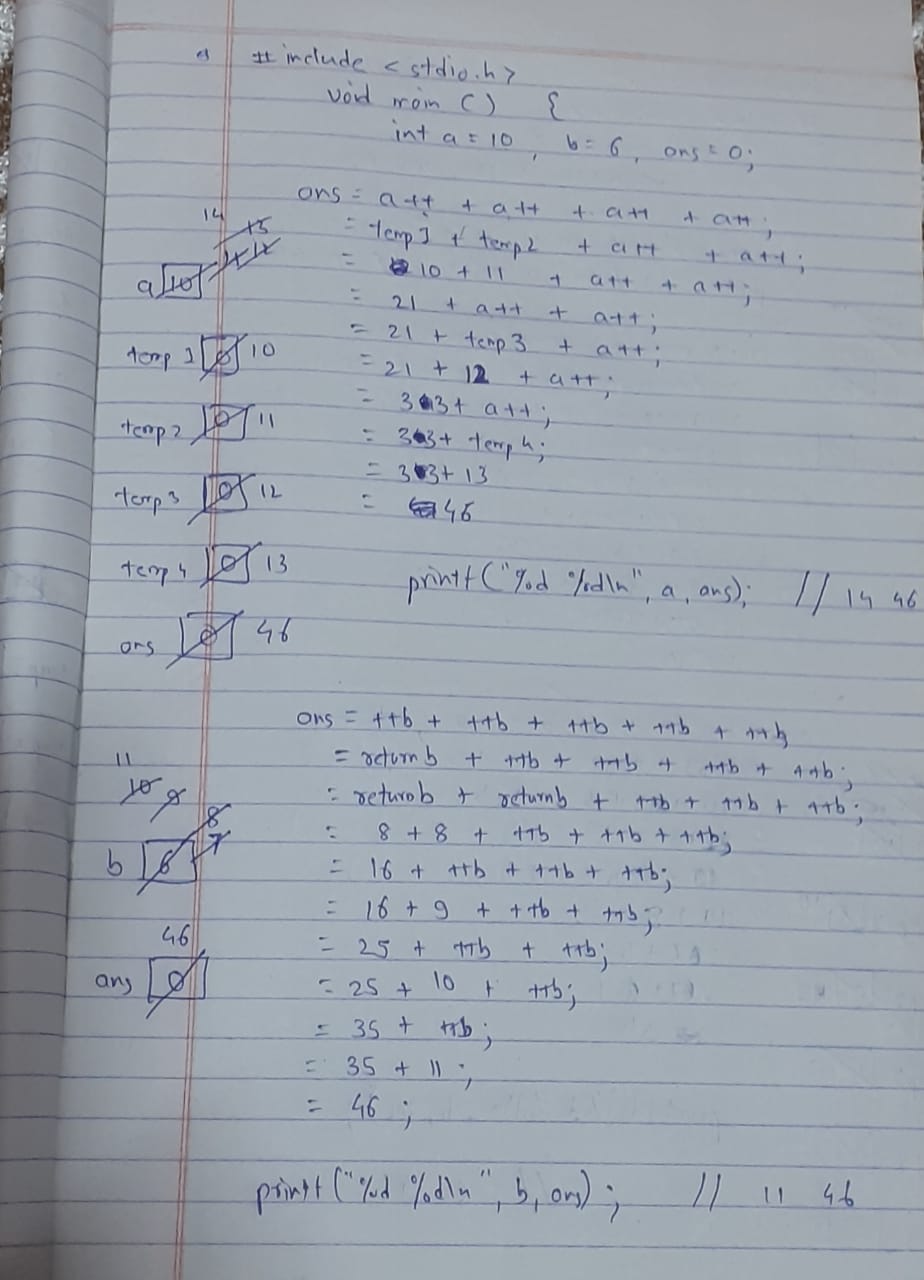 # include <stdio.h>
void main () {
int a = 10, b = 6, ans = 0;
ans = a++ + a++ + a++ + a++;
= temp1 + temp2 + a++ + a++;
= 10 + 11 + a++ + a++;
= 21 + a++ + a++;
= 21 + temp3 + a++;
= 21 + 12 + a++;
= 33 + a++;
= 33 + temp4;
= 33 + 13
= 46
14 13
12 11
a 10
temp1 0 10
temp2 0 11
temp3 0 12
temp4 0 13
ans 0 46
printf("%d %d\n", a, ans); // 14 46
ans = ++b + ++b + ++b + ++b + ++b
= return b + ++b + ++b + ++b + ++b;
= return b + return b + ++b + ++b + ++b;
= 8 + 8 + ++b + ++b + ++b;
= 16 + ++b + ++b + ++b;
= 16 + 9 + ++b + ++b;
= 25 + ++b + ++b;
= 25 + 10 + ++b;
= 35 + ++b;
= 35 + 11;
= 46;
11
10 9 8
b 6 7
46
ans 0
printf("%d %d\n", b, ans); // 11 46